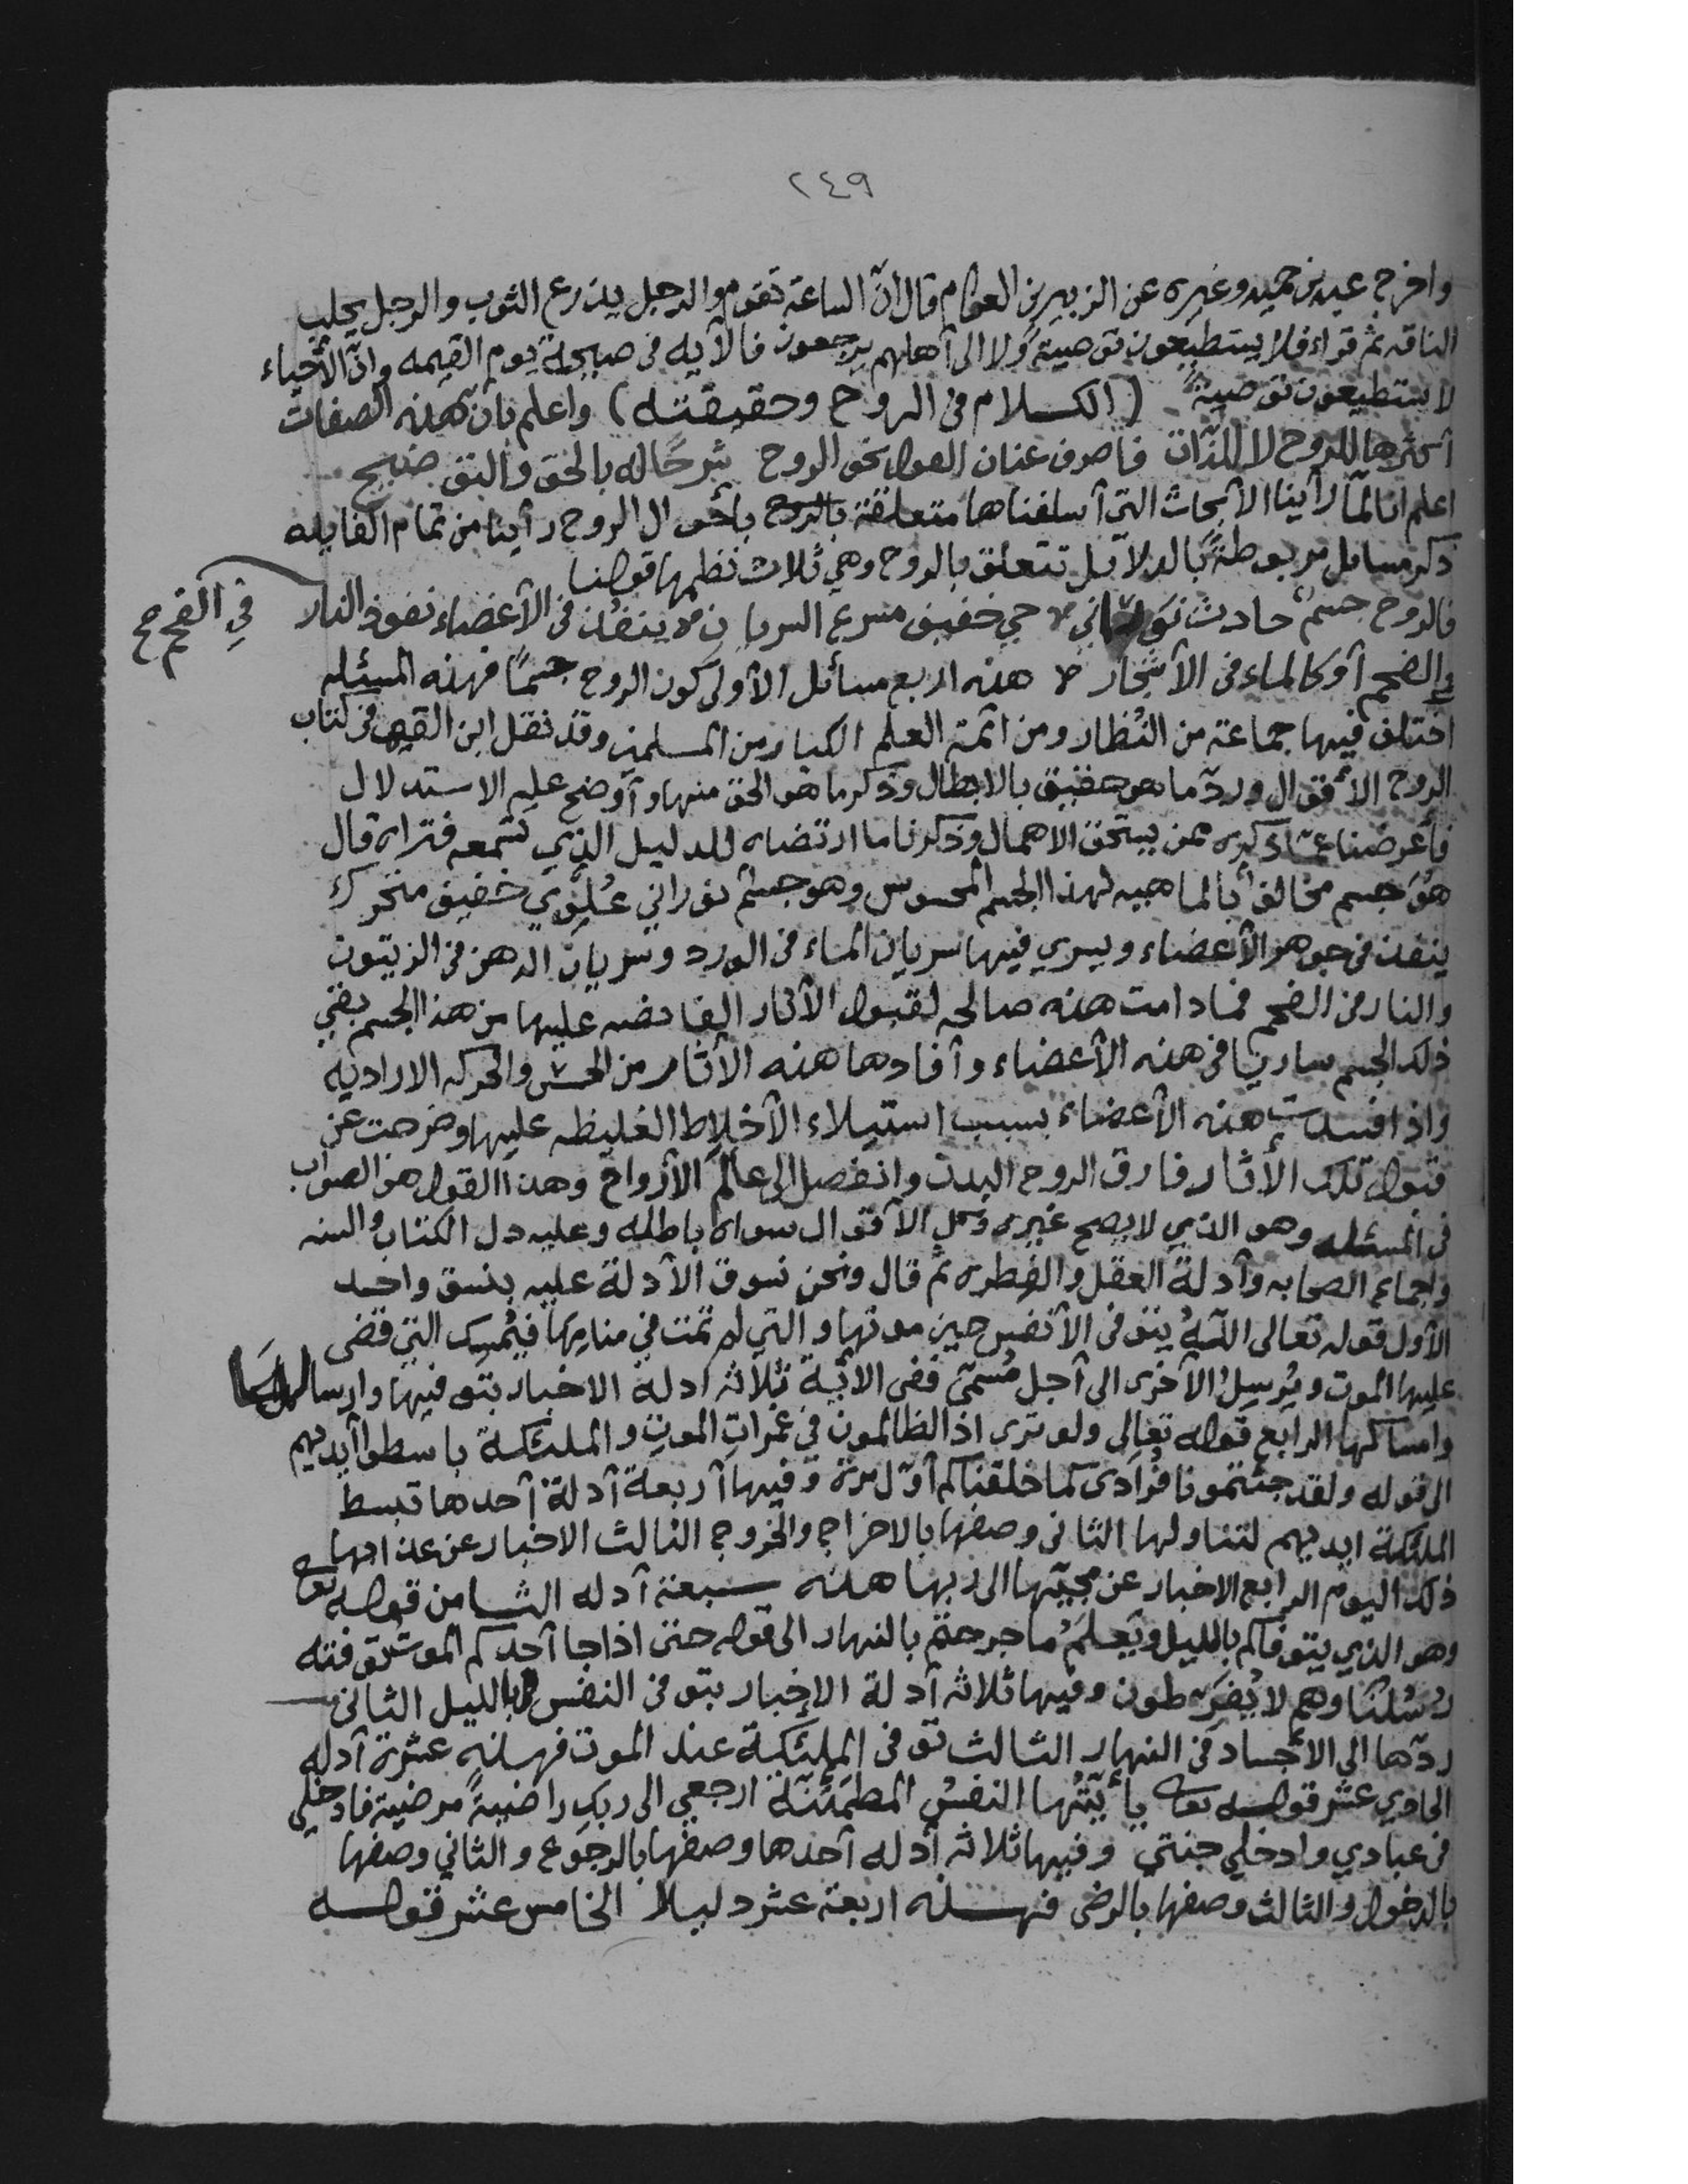 ٢٤٩
واخرج عبد بن حميد وغيره عن الزبير بن العوام قال انّ الساعة تقوم والرجل يذرع الثوب والرجل يحلب
الناقه ثم قراء فلا يستطيعون توصيةً ولا الى آهلهم يرجعون فالآيه فى صبيحة يوم القيمه وانّ الأحياء
لا يستطيعون توصيةً (الكلام فى الروح وحقيقته) واعلم بان هذه الصفات
آكثرها للروح لا للذات فاصرف عنان القول نحو الروح شرحًا له بالحق والتوضيح
اعلم انا لمّا رآينا الآبحاث التي آسلفناها متعلقة بالروح بأحوال الروح رأينا من تمام الفايده
ذكر مسايل مربوطةً بالدلآيل تتعلق بالروح وهي ثلاث نظمها قولنا
فالروح جسمٌ حادث نوراني حي خفيف مسرع السريان ينفذ فى الآعضاء نفوذ النار
في الفحم صح
في الضحم آو كالماء فى الآشجار هذه اربع مسائل الآولى كون الروح جسمًا فهذه المسئله
اختلف فيها جماعة من النُظار ومن ائمة العلم الكبار من المسلمين وقد نقل ابن القيم فى كتاب
الروح الأقوال وردّ ما هو حقيق بالابطال وذكر ما هو الحق منها وآوضح عليه الاستدلال
فأعرضنا عمّا ذكره ممن يستحق الاهمال وذكرنا ما ارتضاه للدليل الذي تسمعه فتراه قال
هوَ جسم مخالف بالماهيه لهذا الجسم المحسوس وهو جسم نوراني عُلوي خفيف متحرك
ينفذ فى جوهر الأعضاء ويسري فيها سريان الماء فى الورد وسريان الدهن فى الزيتون
والنار فى الفحم فما دامت هذه صالحه لقبول الآثار الفائضه عليها من هذا الجسم بقي
ذلك الجسم ساريًا فى هذه الآعضاء وآفادها هذه الآثار من الحس والحركه الاراديه
واذا فسدت هذه الآعضاء بسبب استيلاء الآخلاط الغليظه عليها وخرجت عن
قبول تلك الأثار فارق الروح البدن وانفصل الى عالم الآرواح وهذا القول هو الصواب
فى المسئله وهو الذي لا يصح غيره وكل الآقوال سواه باطله وعليه دل الكتاب والسنه
واجماع الصحابه وآدلة العقل والفطره ثم قال ونحن نسوق الآدلة عليه بنسق واحد
الآول قوله تعالى اللّهُ يتوفى الآنفس حين موتها والتي لم تمت في منامِها فيُمسِك التي قضى
عليها الموت ويُرسِلُ الآخرى الى آجل مُسمّى ففى الايَة ثلاثه ادله الاخبار بتوفيها وارسالها
وامساكها الرابع قوله تعالى ولو ترى اذ الظالمون في غمراتِ الموتِ والملئكة باسطوا آيديهم
الى قوله ولقد جئتمونا فُرادى كما خلقناكم آوّل مرة وفيها آربعة آدلة آحدها تبسط
الملئكة ايديهم لتناولها الثانى وصفها بالاخراج والخروج الثالث الاخبار عن عذابها
ذلك اليوم الرابع الاخبار عن مجيّها الى ربها هذه سبعة آدله الثامن قوله تعالى
وهو الذي يتوفاكم بالليل ويَعلمُ ما جرحتم بالنهار الى قوله حتى اذا جا آحدكم الموت توفته
رُسُلنا وهم لا يُفرّطون وفيها ثلاثه آدلة الاخبار بتوفى النفس بالليل الثانى
ردّها الى الاجساد فى النهار الثالث توفى الملئكة عند الموت فهذه عشرة آدله
الحادي عشر قوله تعالى يأيّتُها النفسُ المطمَئنّة ارجعي الى ربكِ راضيةً مرضيّة فادخلي
فى عبادي وادخلي جنتي وفيها ثلاثه آدله آحدها وصفها بالرجوع والثاني وصفها
بالدخول والثالث وصفها بالرضى فهذه اربعة عشر دليلا الخامس عشر قوله